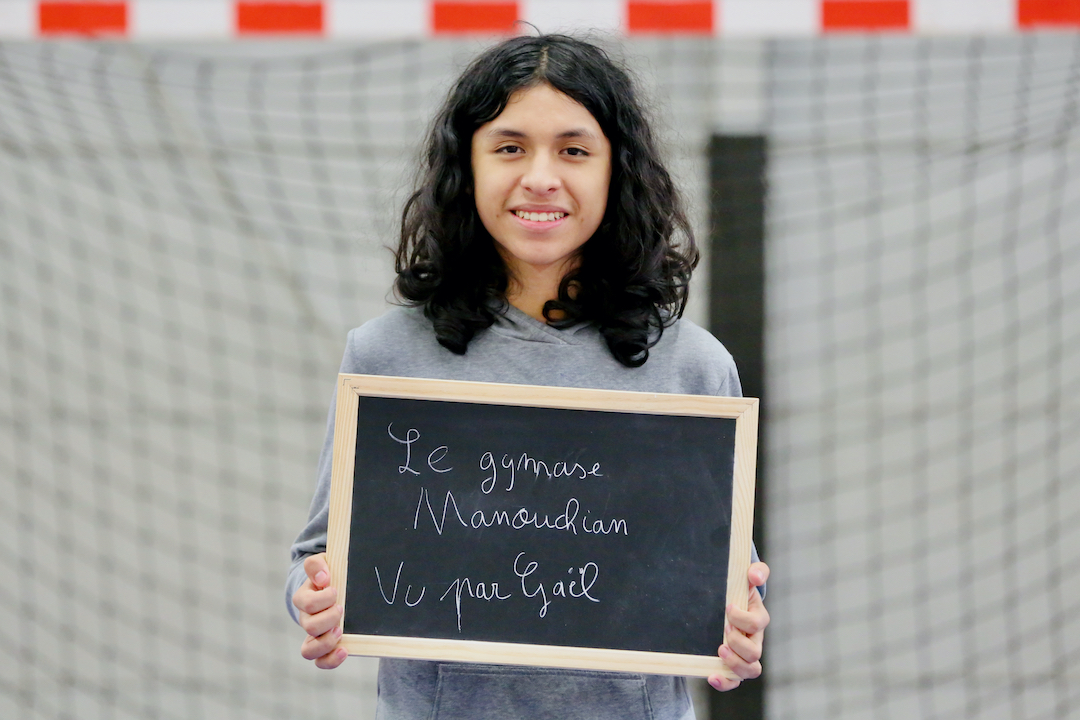 Le gymnase
Manouchian
Vu par Gaël